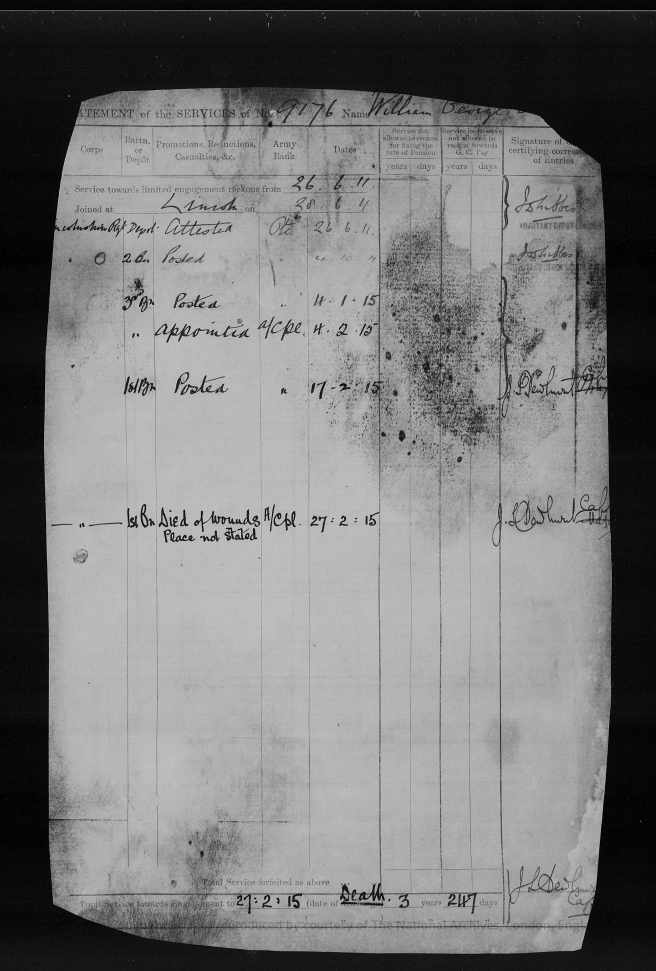 STATEMENT of the SERVICES of No. 9176 Name William George
Corps Battn. or Depôt Promotions, Reductions, Casualties, &c. Army Rank Dates Service not allowed to reckon for fixing the rate of Pension years days Service in Reserve not allowed to reckon towards G. C. Pay years days Signature of certifying correctness of Entries
Service towards limited engagement reckons from 26. 6. 11
Joined at Lincoln on 28 6 11
Lincolnshire Regt Depot Attested Pte 26 6 11
" 2 Bn Posted "
3rd Bn Posted " 4. 1. 15
" appointed a/Cpl. 4. 2. 15
1st Bn Posted " 17. 2. 15 J. L. Dewhurst Capt
— " — 1st Bn Died of wounds A/Cpl. 27: 2: 15 J. L. Dewhurst Capt
Place not stated
Total Service forfeited as above
Total Service towards Engagement to 27: 2: 15 (date of Death. 3 years 247 days J. L. Dewhurst Capt